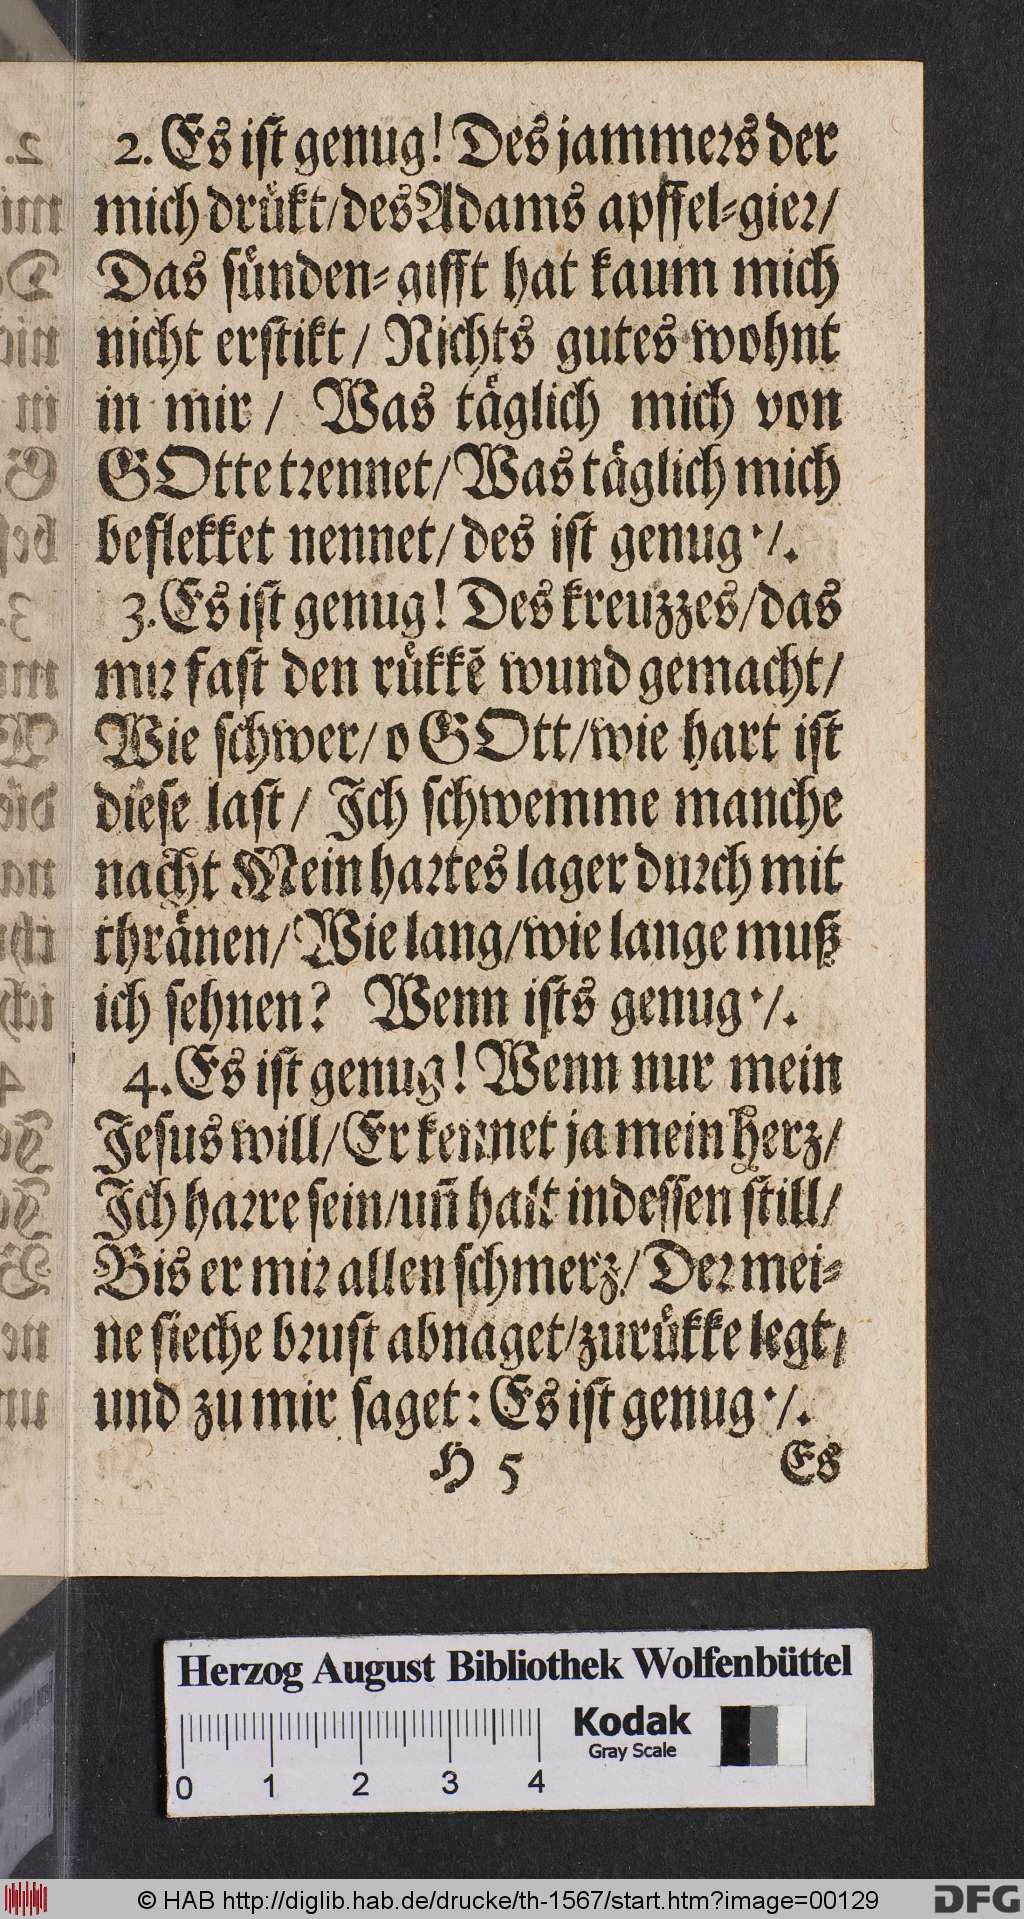 2. Es ist genug! Des jammers der
mich drükt/des Adams apffel-gier/
Das sünden-gifft hat kaum mich
nicht erstikt/ Nichts gutes wohnt
in mir/ Was täglich mich von
GOtte trennet/ Was täglich mich
beflekket nennet/ des ist genug ·/.
3. Es ist genug! Des kreuzzes/das
mir fast den rükkē wund gemacht/
Wie schwer/o GOtt/wie hart ist
diese last/ Ich schwemme manche
nacht Mein hartes lager durch mit
thränen/ Wie lang/wie lange muß
ich sehnen? Wenn ists genug ·/.
4. Es ist genug! Wenn nur mein
Jesus will/ Er kennet ja mein herz/
Ich harre sein/un̄ halt indessen still/
Bis er mir allen schmerz/ Der mei-
ne sieche brust abnaget/zurükke legt/
und zu mir saget: Es ist genug ·/.
H 5 Es
Herzog August Bibliothek Wolfenbüttel
Kodak
Gray Scale
0 1 2 3 4
© HAB http://diglib.hab.de/drucke/th-1567/start.htm?image=00129
DFG